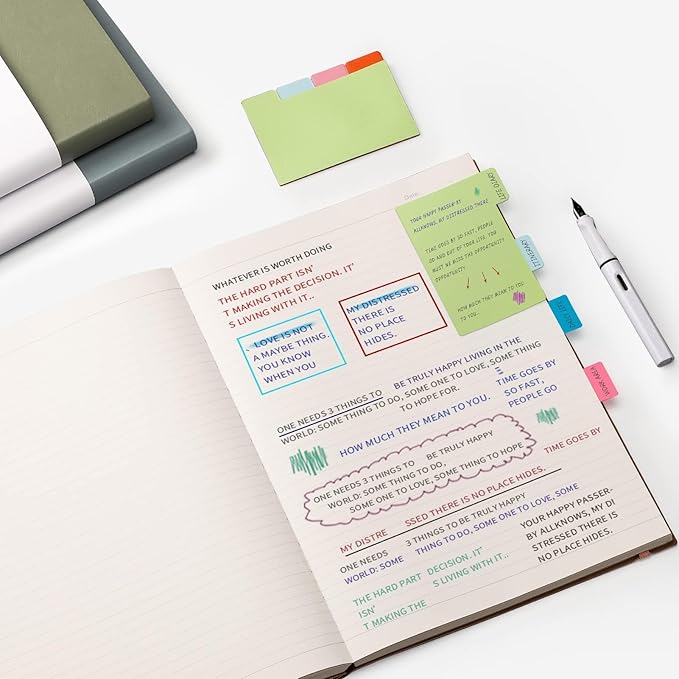 Date:
WHATEVER IS WORTH DOING
THE HARD PART ISN'
T MAKING THE DECISION. IT'
S LIVING WITH IT..
. LOVE IS NOT
A MAYBE THING.
YOU KNOW
WHEN YOU
MY DISTRESSED
THERE IS
NO PLACE
HIDES.
YOUR HAPPY PASSER-BY
ALLKNOWS, MY DISTRESSED THERE
TIME GOES BY SO FAST, PEOPLE
GO AND OUT OF YOUR LIFE. YOU
MUST NE MISS THE OPPORTUNITY
OPPORTUNITY
HOW MUCH THEY MEAN TO YOU
TO YOU..
LITE DIARY
ITINERARY
DAILY JOB
WORK AREA
ONE NEEDS 3 THINGS TO BE TRULY HAPPY LIVING IN THE
WORLD: SOME THING TO DO, SOME ONE TO LOVE, SOME THING
TO HOPE FOR.
TIME GOES BY
SO FAST,
PEOPLE GO
HOW MUCH THEY MEAN TO YOU.
ONE NEEDS 3 THINGS TO BE TRULY HAPPY
WORLD: SOME THING TO DO,
SOME ONE TO LOVE, SOME THING TO HOPE
TIME GOES BY
MY DISTRE SSED THERE IS NO PLACE HIDES.
ONE NEEDS 3 THINGS TO BE TRULY HAPPY
WORLD: SOME THING TO DO, SOME ONE TO LOVE, SOME
YOUR HAPPY PASSER-
BY ALLKNOWS, MY DI
STRESSED THERE IS
NO PLACE HIDES.
THE HARD PART DECISION. IT'
ISN' S LIVING WITH IT..
T MAKING THE